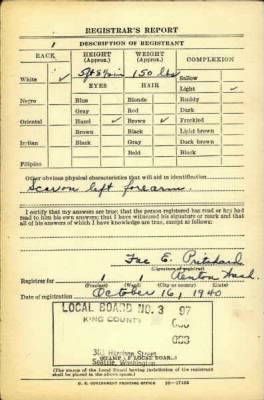 REGISTRAR'S REPORT
1
DESCRIPTION OF REGISTRANT
RACE HEIGHT (Approx.) WEIGHT (Approx.) COMPLEXION
White ✓ 150 lbs Sallow
EYES HAIR Light ✓
Negro Blue Blonde Ruddy
Gray Red Dark
Oriental Hazel ✓ Brown ✓ Freckled
Brown Black Light brown
Indian Black Gray Dark brown
Bald Black
Filipino
Other obvious physical characteristics that will aid in identification
Scar on left forearm.
I certify that my answers are true; that the person registered has read or has had
read to him his own answers; that I have witnessed his signature or mark and that
all of his answers of which I have knowledge are true, except as follows:
E. Pritchard
(Signature of registrar)
Registrar for 1 Renton Wash.
(Precinct) (Ward) (City or county) (State)
Date of registration October 16, 1940
LOCAL BOARD NO. 3 97
KING COUNTY
Harrison Street
(STAMP OF LOCAL BOARD)
Seattle Washington
(The stamp of the Local Board having jurisdiction of the registrant
shall be placed in the above space.)
U. S. GOVERNMENT PRINTING OFFICE 16—17105